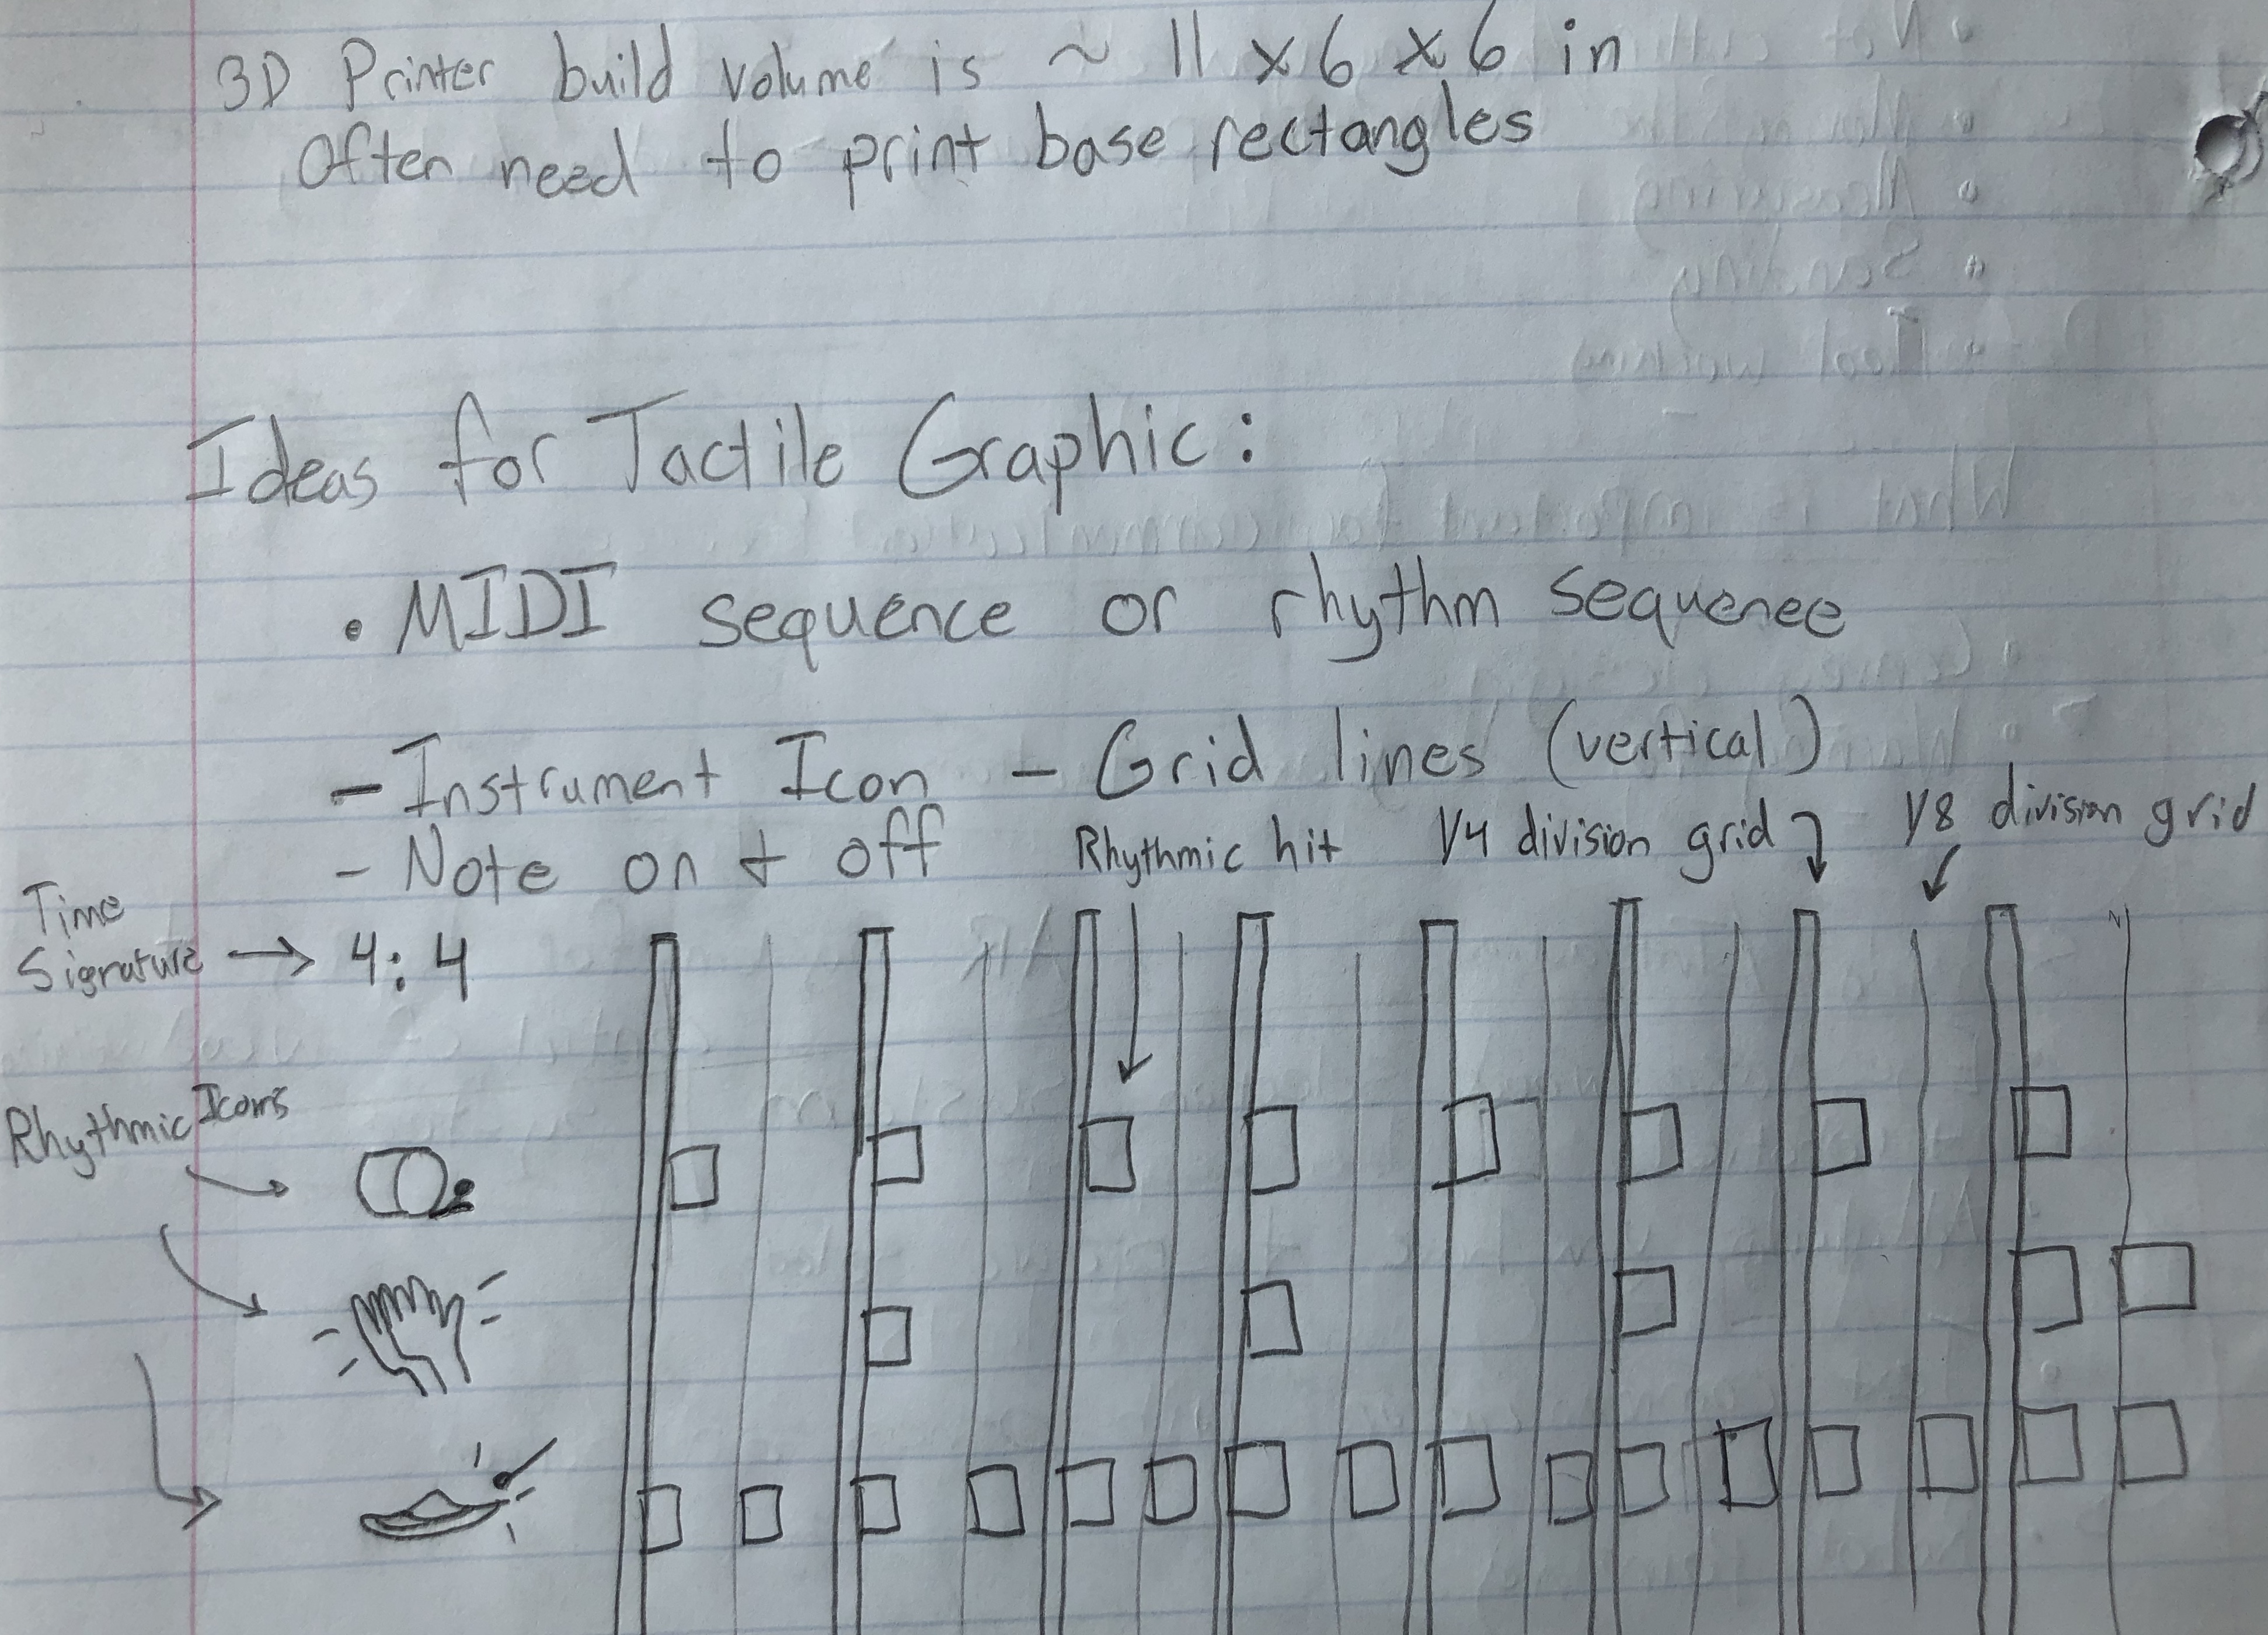 3D Printer build volume is ~ 11 x 6 x 6 in
Often need to print base rectangles
Ideas for Tactile Graphic:
• MIDI sequence or rhythm sequence
- Instrument Icon - Grid lines (vertical)
- Note on + off
Rhythmic hit 1/4 division grid 1/8 division grid
Time
Signature → 4:4
Rhythmic Icons